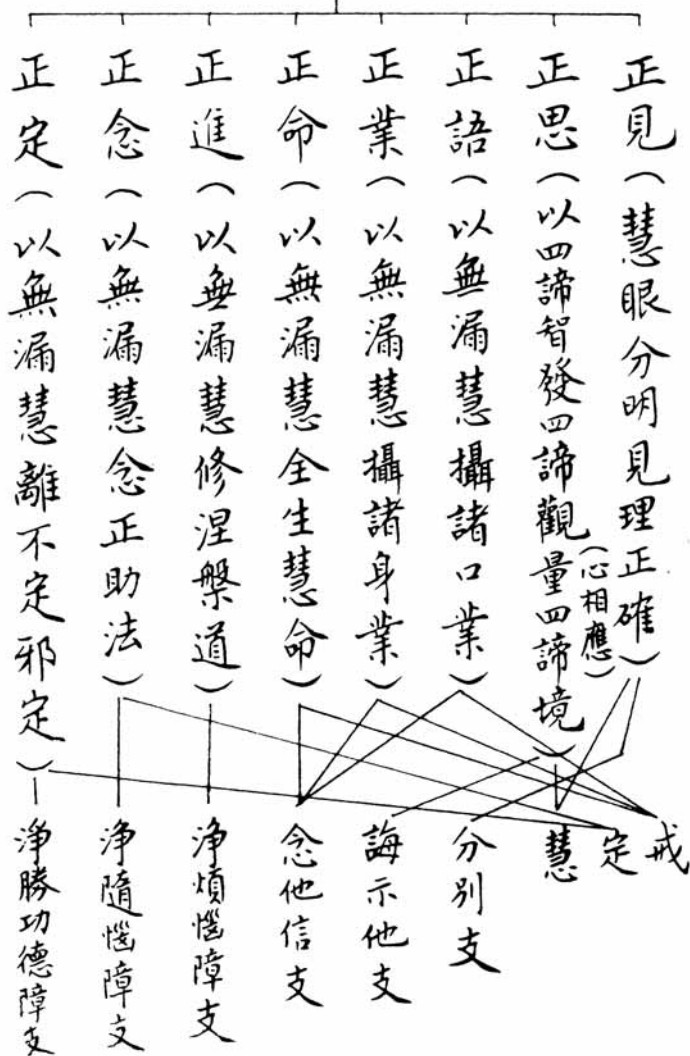 正見（慧眼分明見理正確）
正思（以四諦智發四諦觀量四諦境）
（心相應）
正語（以無漏慧攝諸口業）
正業（以無漏慧攝諸身業）
正命（以無漏慧全生慧命）
正進（以無漏慧修涅槃道）
正念（以無漏慧念正助法）
正定（以無漏慧離不定邪定）
戒
定
慧
分別支
誨示他支
念他信支
淨煩惱障支
淨隨惱障支
淨勝功德障支